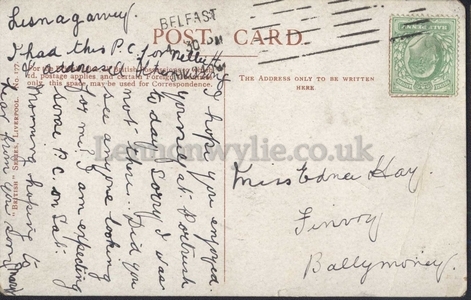 Lisnagarvey.
I had this P.C. for Nelly &
I addressed
hope you enjoyed
yourself at Portrush
to-day. Sorry I was
not there. Did you
see anyone looking
for me. I am expecting
some P.C. on Sat.
morning hoping to
hear from you soon
BELFAST
POST CARD.
THE ADDRESS ONLY TO BE WRITTEN
HERE.
postage applies and certain
only, this space may be used for Correspondence.
"BRITISH" SERIES, LIVERPOOL. No. 177
Miss Edner Hay.
Finvoy
Ballymoney.
Lennonwylie.co.uk